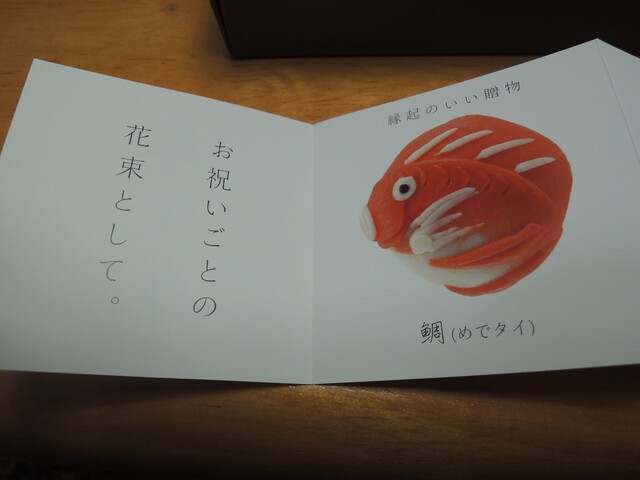 お祝いごとの
花束として。
縁起のいい贈物
鯛(めでタイ)